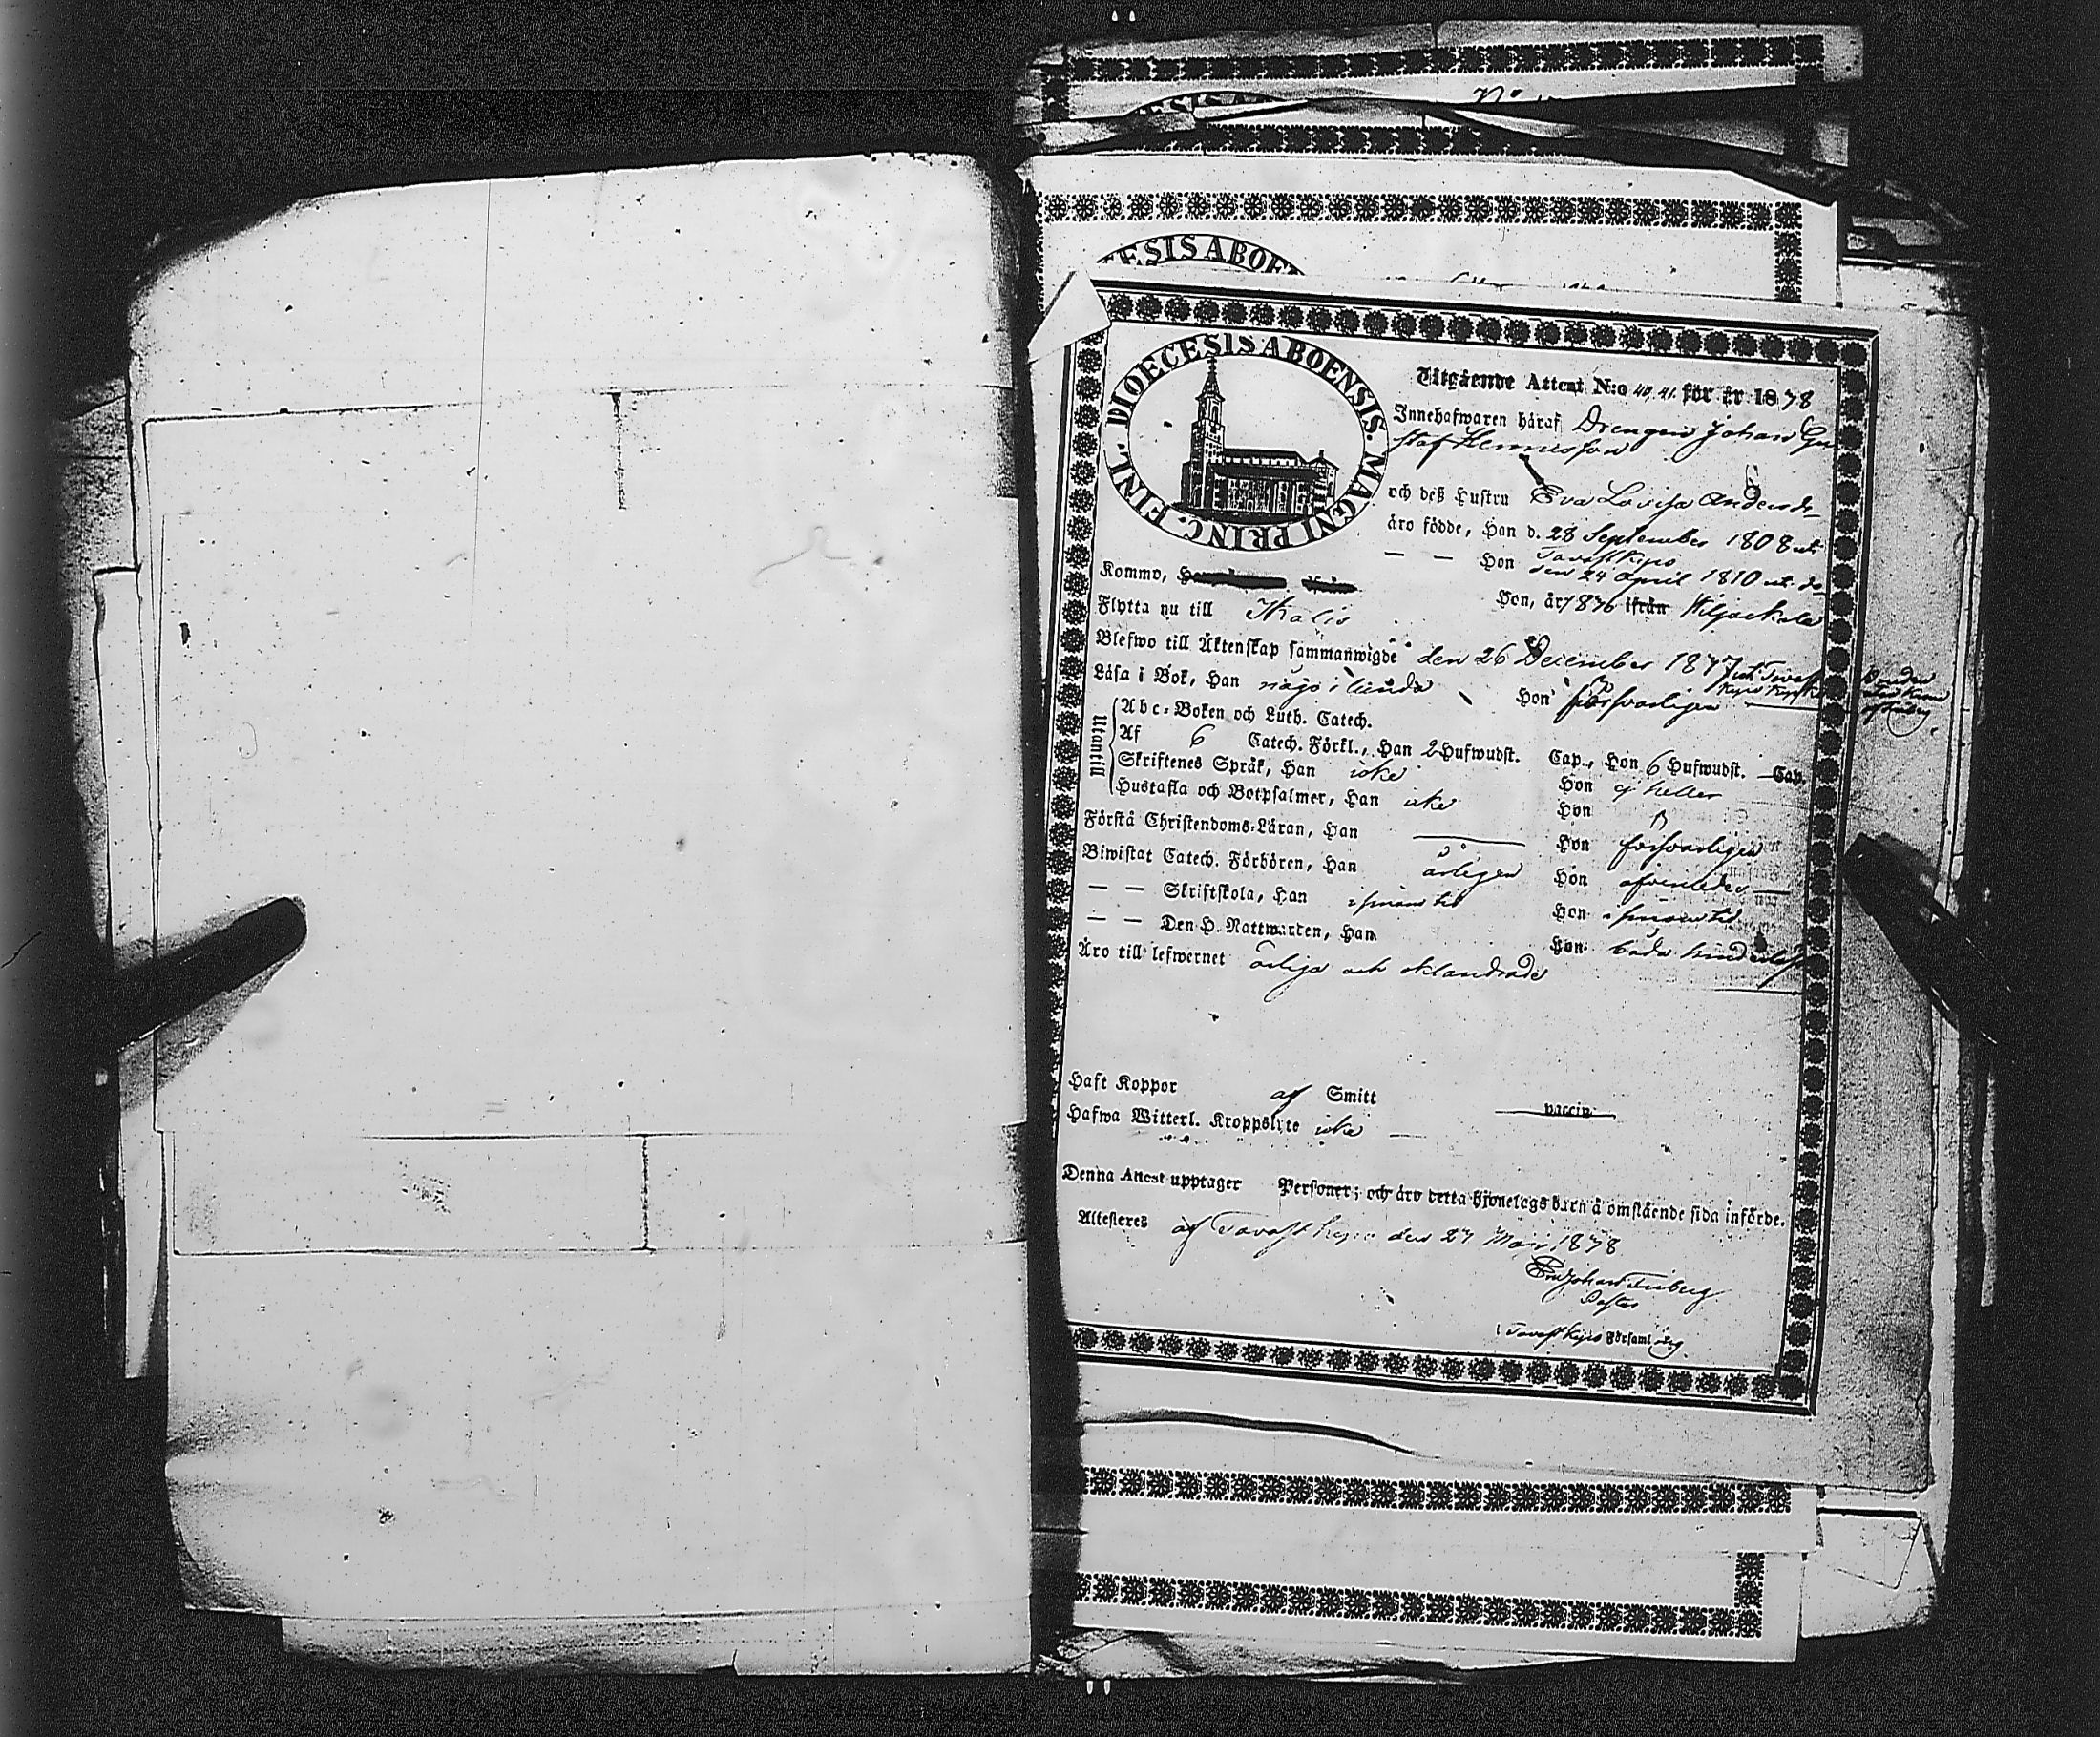 DIOECESIS ABOENSIS. MAGNI PRINC. FINL.
Utgående Attest N:o 40, 41. för år 1878
Innehafwaren häraf Drengen Johan Gu
staf Hennisson
och deß Hustru Eva Lovisa Andersdr
äro födde, Han d. 28 September 1808 uti
Tavastkyro
— — Hon den 24 April 1810 uti do
Komno,
Hon, år 1876 ifrån Wiljackala
Flytta nu till Ikalis
Blefwo till Äktenskap sammanwigde den 26 December 1877 uti Tavast
Kyro Kyrka
Läsa i Bok, Han någorlunda Hon försvarligen
Utantill
Abc-Boken och Luth. Catech.
Af 6 Catech. Förkl., Han 2 Hufwudst. Cap., Hon 6 Hufwudst. Cap.
Skriftenes Språk, Han icke Hon ej heller
Hustafla och Botpsalmer, Han icke Hon
Förstå Christendoms-Läran, Han — Hon försvarligen
Biwistat Catech. Förhören, Han årligen Hon afvenledes
— — Skriftskola, Han i sinom tid Hon i sinom tid
— — Den H. Nattwarden, Han
Hon båda hinderlös
Äro till lefwernet ärliga och oklandrade
Haft Koppor af Smitt vaccin
Hafwa Witterl. Kroppslyte icke —
Denna Attest upptager Personer; och äro detta Hjonelags barn å omstående sida införde.
Attesteres af Tavastkyro den 27 Maii 1878
Johan Friberg
Pastor
i Tavastkyro Församling.
ESIS ABOE